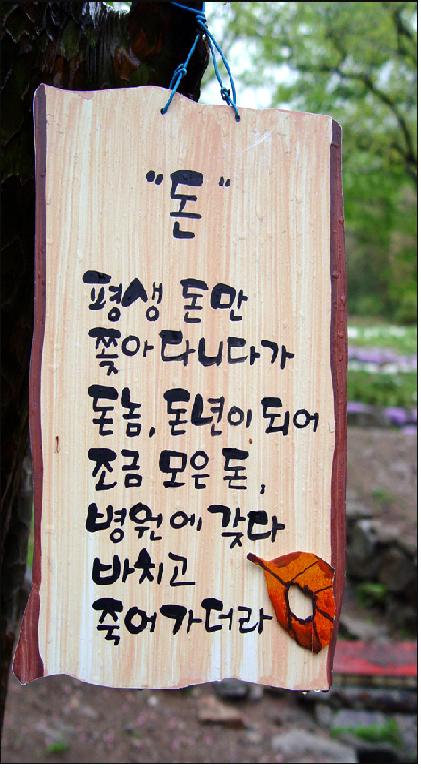 "돈"
평생 돈만
쫓아 다니다가
돈놈, 돈년이 되어
조금 모은 돈,
병원에 갖다
바치고
죽어가더라